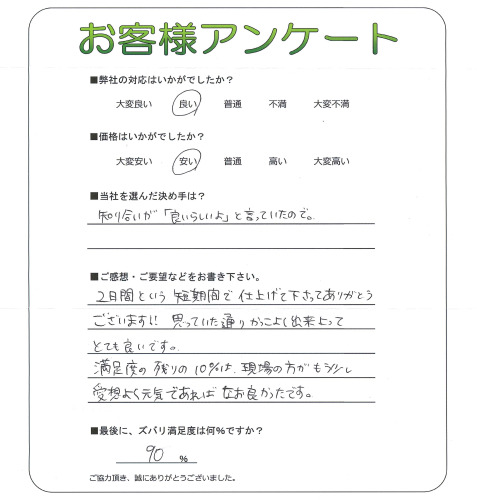 お客様アンケート
■弊社の対応はいかがでしたか？
大変良い 良い 普通 不満 大変不満
■価格はいかがでしたか？
大変安い 安い 普通 高い 大変高い
■当社を選んだ決め手は？
知り合いが「良いらしいよ」と言っていたので。
■ご感想・ご要望などをお書き下さい。
2日間という短期間で仕上げて下さってありがとう
ございます!! 思っていた通りかっこよく出来上って
とても良いです。
満足度の残りの10%は、現場の方がもう少し
愛想よく元気であればなお良かったです。
■最後に、ズバリ満足度は何%ですか？
90 %
ご協力頂き、誠にありがとうございました。